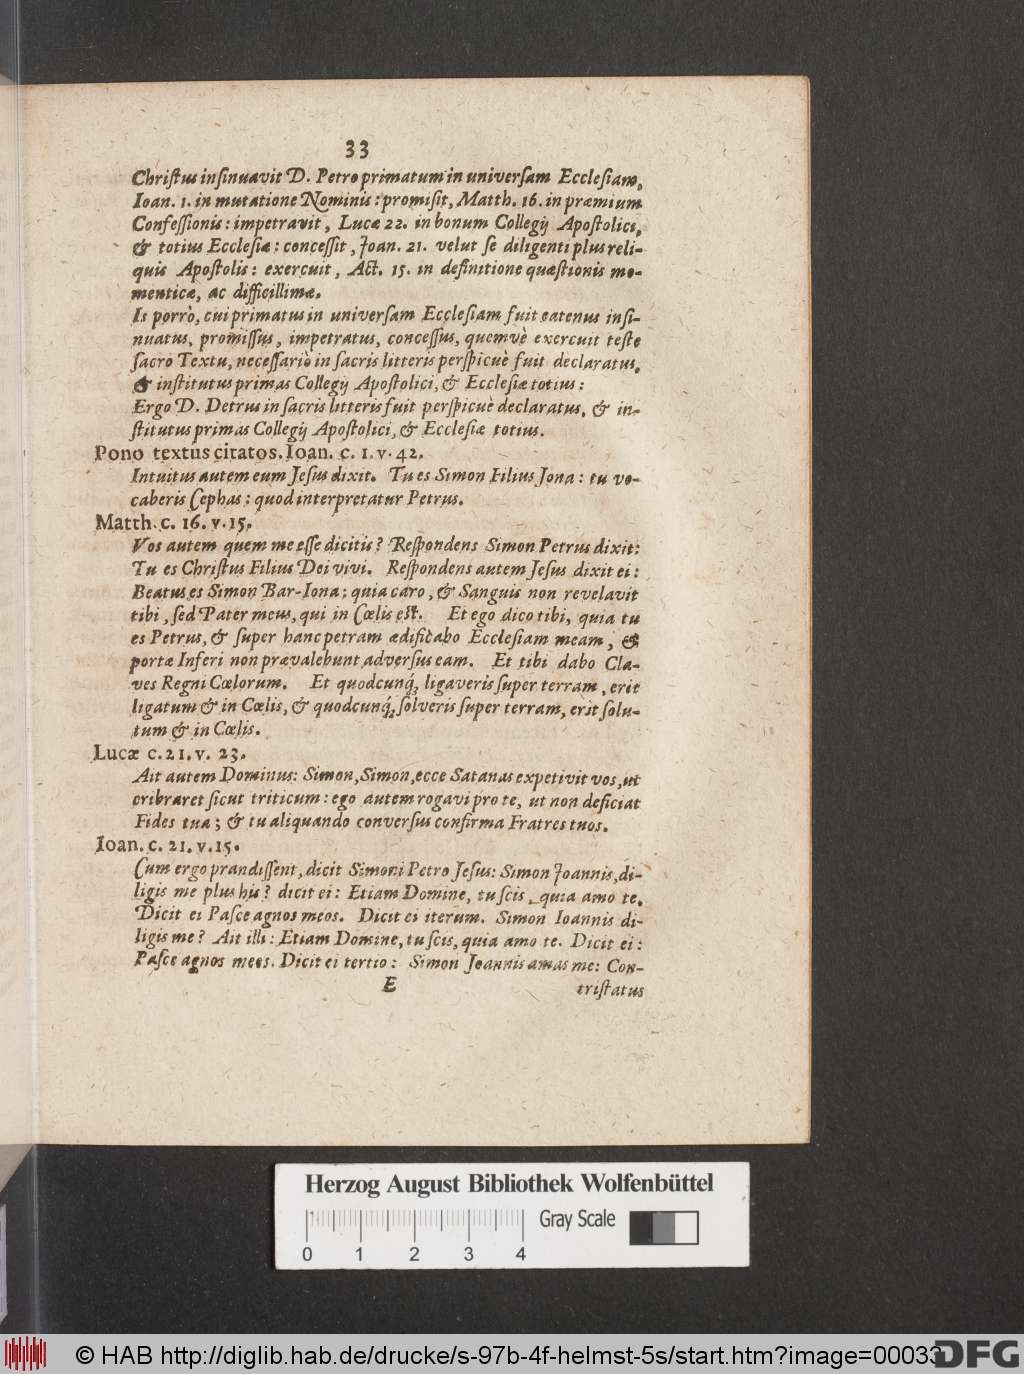 33
Christus insinuavit D. Petro primatum in universam Ecclesiam,
Ioan. 1. in mutatione Nominis: promisit, Matth. 16. in præmium
Confessionis: impetravit, Lucæ 22. in bonum Collegij Apostolici,
& totius Ecclesiæ: concessit, Joan. 21. velut se diligenti plus reli-
quis Apostolis: exercuit, Act. 15. in definitione quæstionis mo-
menticæ, ac difficillimæ.
Is porrò, cui primatus in universam Ecclesiam fuit eatenus insi-
nuatus, promissus, impetratus, concessus, quemvè exercuit teste
sacro Textu, necessariò in sacris litteris perspicuè fuit declaratus,
& institutus primas Collegij Apostolici, & Ecclesiæ totius:
Ergo D. Detrus in sacris litteris fuit perspicuè declaratus, & in-
stitutus primas Collegij Apostolici, & Ecclesiæ totius.
Pono textus citatos. Ioan. c. 1. v. 42.
Intuitus autem eum Jesus dixit. Tu es Simon Filius Jona: tu vo-
caberis Cephas: quod interpretatur Petrus.
Matth. c. 16. v. 15.
Vos autem quem me esse dicitis? Respondens Simon Petrus dixit:
Tu es Christus Filius Dei vivi. Respondens autem Jesus dixit ei:
Beatus es Simon Bar-Iona; quia caro, & Sanguis non revelavit
tibi, sed Pater meus, qui in Cœlis est. Et ego dico tibi, quia tu
es Petrus, & super hanc petram ædificabo Ecclesiam meam, &
portæ Inferi non prævalebunt adversus eam. Et tibi dabo Cla-
ves Regni Cœlorum. Et quodcunq́; ligaveris super terram, erit
ligatum & in Cœlis, & quodcunq́; solveris super terram, erit solu-
tum & in Cœlis.
Lucæ c. 21. v. 23.
Ait autem Dominus: Simon, Simon, ecce Satanas expetivit vos, ut
cribraret sicut triticum: ego autem rogavi pro te, ut non deficiat
Fides tua; & tu aliquando conversus confirma Fratres tuos.
Ioan. c. 21. v. 15.
Cum ergo prandissent, dicit Simoni Petro Jesus: Simon Joannis, di-
ligis me plus his? dicit ei: Etiam Domine, tu scis, quia amo te.
Dicit ei Pasce agnos meos. Dicit ei iterum. Simon Ioannis di-
ligis me? Ait illi: Etiam Domine, tu scis, quia amo te. Dicit ei:
Pasce agnos meos. Dicit ei tertio: Simon Joannis amas me: Con-
E tristatus
Herzog August Bibliothek Wolfenbüttel
Gray Scale
0 1 2 3 4
© HAB http://diglib.hab.de/drucke/s-97b-4f-helmst-5s/start.htm?image=00033
DFG